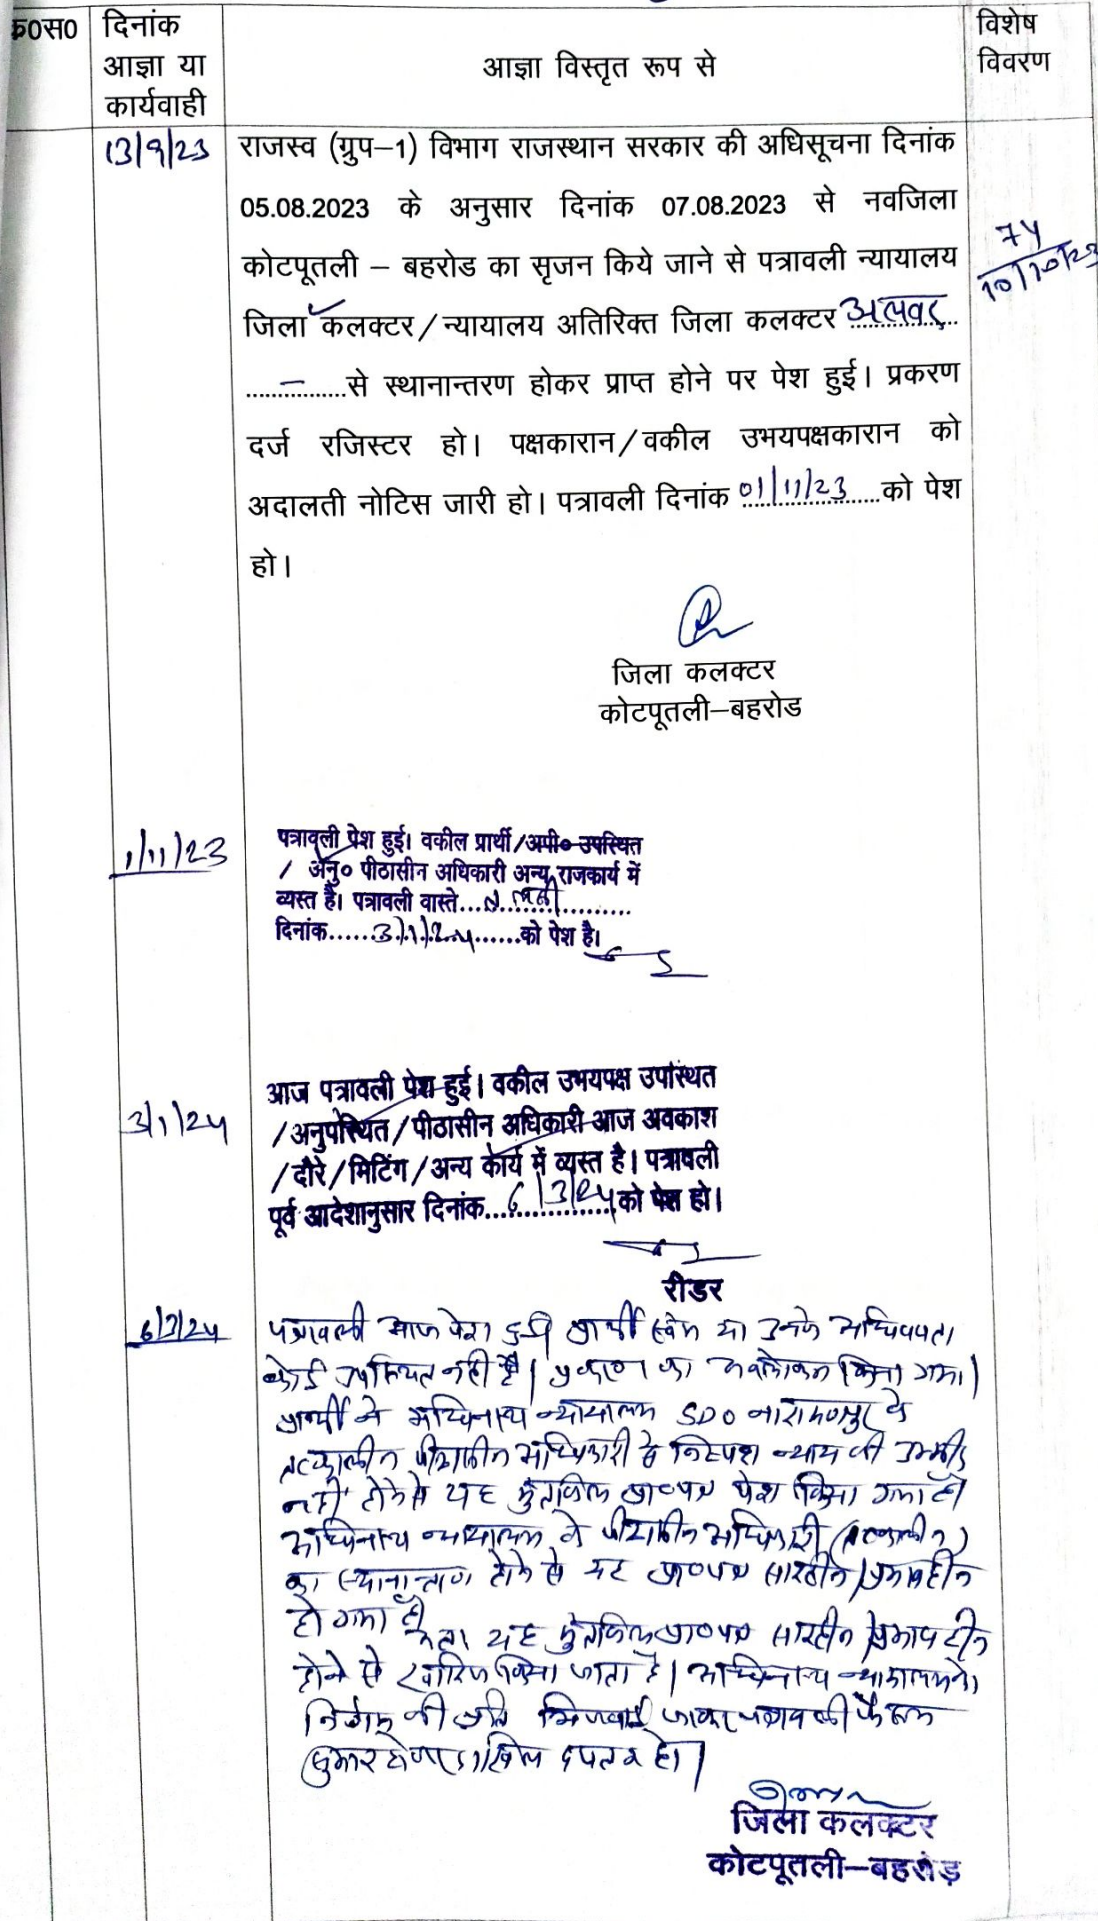 क0स0 दिनांक आज्ञा या कार्यवाही
आज्ञा विस्तृत रूप से
विशेष विवरण
13/9/23 राजस्व (ग्रुप–1) विभाग राजस्थान सरकार की अधिसूचना दिनांक
05.08.2023 के अनुसार दिनांक 07.08.2023 से नवजिला
कोटपूतली – बहरोड का सृजन किये जाने से पत्रावली न्यायालय
74
10/10/23
जिला कलक्टर/न्यायालय अतिरिक्त जिला कलक्टर अलवर
................से स्थानान्तरण होकर प्राप्त होने पर पेश हुई। प्रकरण
दर्ज रजिस्टर हो। पक्षकारान/वकील उभयपक्षकारान को
अदालती नोटिस जारी हो। पत्रावली दिनांक 01/11/23 को पेश
हो।
जिला कलक्टर
कोटपूतली–बहरोड
1/11/23 पत्रावली पेश हुई। वकील प्रार्थी/अपी० उपस्थित
/ अनु० पीठासीन अधिकारी अन्य राजकार्य में
व्यस्त है। पत्रावली वास्ते...
दिनांक......3/1/24......को पेश है।
3/1/24 आज पत्रावली पेश हुई। वकील उभयपक्ष उपस्थित
/अनुपस्थित/पीठासीन अधिकारी आज अवकाश
/दौरे/मिटिंग/अन्य कार्य में व्यस्त है। पत्रावली
पूर्व आदेशानुसार दिनांक...6/3/24 को पेश हो।
रीडर
6/3/24 पत्रावली आज पेश हुई प्रार्थी स्वंम या उनके अधिवक्ता
कोई उपस्थित नहीं है। प्रकरण का अवलोकन किया गया।
प्रार्थी ने अधिनस्थ न्यायालय SDO नारायणपुर के
तत्कालीन पीठासीन अधिकारी से निष्पक्ष न्याय की उम्मीद
नहीं होने से यह मुंतकिल प्रा०पत्र पेश किया गया है।
अधिनस्थ न्यायालय के पीठासीन अधिकारी (तत्कालीन)
का स्थानान्तरण होने से यह प्रा०पत्र सारहीन/प्रभावहीन
हो गया है।
अतः यह मुंतकिल प्रा०पत्र सारहीन/प्रभावहीन
होने से खारिज किया जाता है। अधिनस्थ न्यायालय को
निर्णय की प्रति भिजवाई जाकर पत्रावली फैसल
शुमार होकर दाखिल दफ्तर हो।
जिला कलक्टर
कोटपूतली–बहरोड़